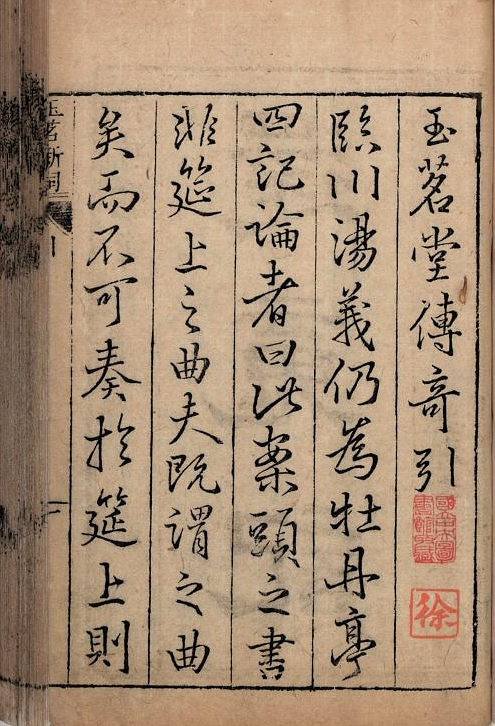 玉茗堂傳奇引
臨川湯義仍為牡丹亭
四記論者曰此案頭之書
非筵上之曲夫既謂之曲
矣而不可奏於筵上則
徐